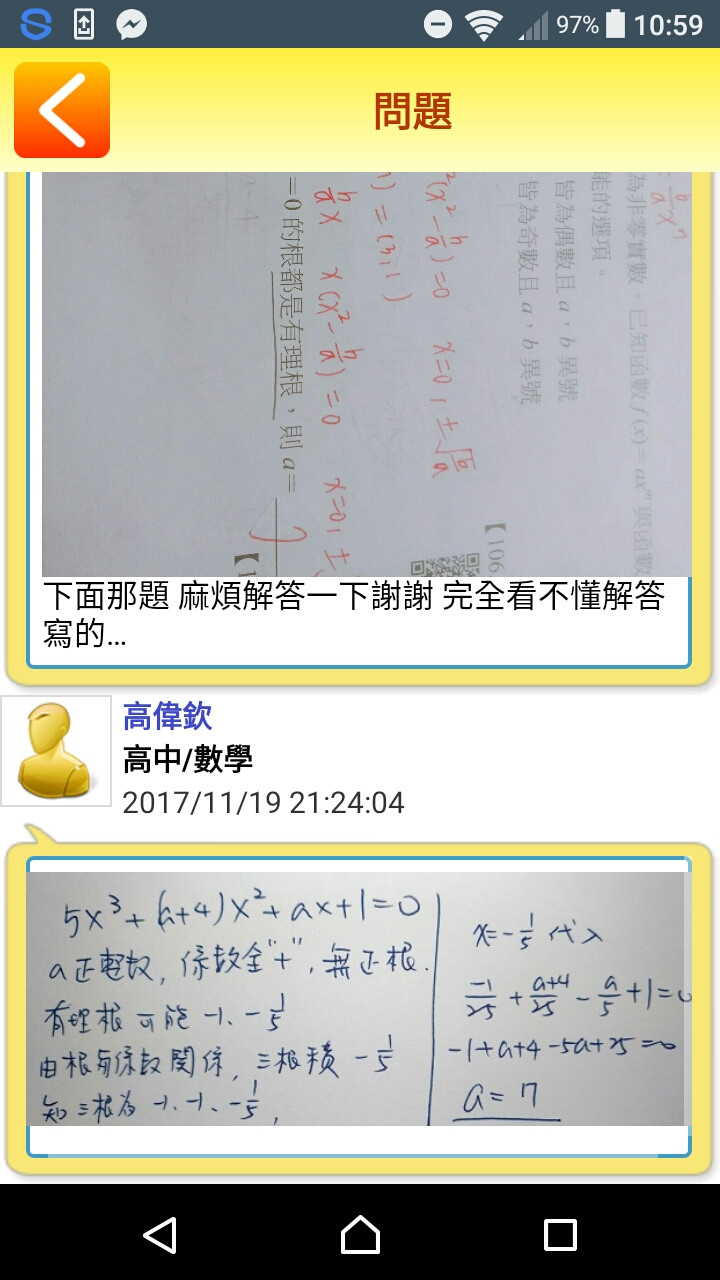 97% 10:59
問題
b/a xⁿ
為非零實數。已知函數 f(x) = axᵐ 與函數
能的選項。
皆為偶數且 a，b 異號
皆為奇數且 a，b 異號
【106
²(x² - b/a) = 0 x = 0, ±√(b/a)
) = (3, 1)
b/a x x(x² - b/a) = 0 x = 0, ±
= 0 的根都是有理根，則 a =
7
下面那題 麻煩解答一下謝謝 完全看不懂解答
寫的...
高偉欽
高中/數學
2017/11/19 21:24:04
5x³ + (a+4)x² + ax + 1 = 0
a正整數, 係數全"+", 無正根.
有理根可能 -1、-1/5
由根與係數關係, 三根積 -1/5
知三根為 -1、-1、-1/5,
x = -1/5 代入
-1/25 + (a+4)/25 - a/5 + 1 = 0
-1 + a + 4 - 5a + 25 = 0
a = 7